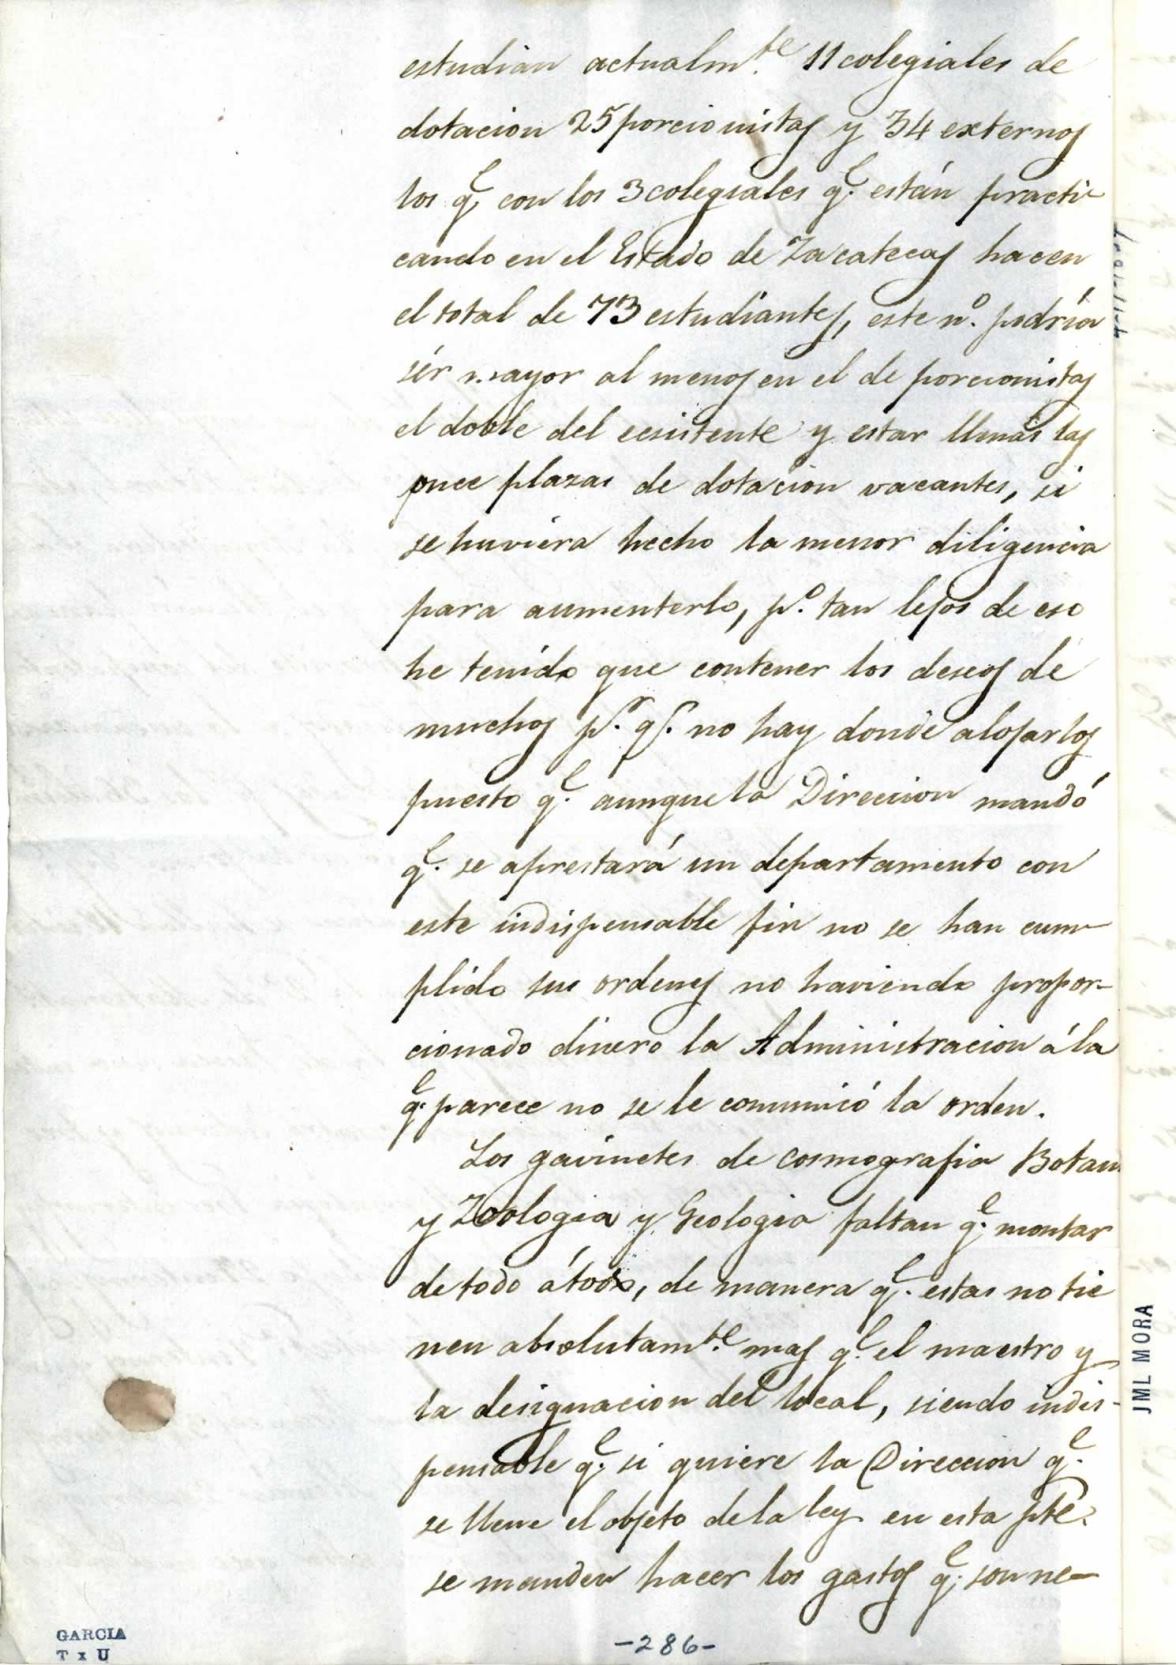 estudian actualm.te 11 colegiales de
dotacion 25 porcionistas y 34 externos
los q.e con los 3 colegiales q.e están practi-
cando en el Estado de Zacatecas hacen
el total de 73 estudiantes, este n.o podría
sér mayor al menos en el de porcionistas
el doble del ecsistente y estar llenas las
once plazas de dotacion vacantes, si
se huviera hecho la menor diligencia
para aumenterlo, p.o tan lejos de eso
he tenido que contener los deseos de
muchos p.r q.e no hay donde alojarlos
puesto q.e aunque la Direccion mandó
q.e se aprestará un departamento con
este indispensable fin no se han cum-
plido sus ordenes no haviendo propor-
cionado dinero la Administracion á la
q.e parece no se le comunicó la orden.
Los gavinetes de cosmografia Botan
y Zoologia y Geologia faltan q.e montar
de todo á todo, de manera q.e estas no tie
nen absolutam.te mas q.e el maestro y
la designacion del local, siendo indis-
pensable q.e si quiere la Direccion q.e
se llene el objeto de la ley en esta pte.
se manden hacer los gastos q.e son ne-
-286-
GARCIA
T x U
JML MORA